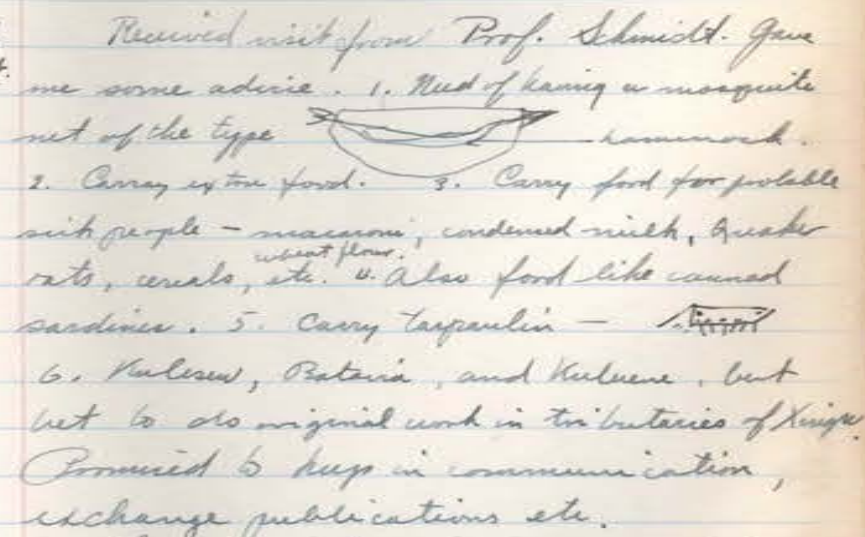 Received visit from Prof. Schmidt. Gave
me some advice. 1. Need of having a mosquite
net of the type hammock.
2. Carray extra food. 3. Carry food for probable
sick people - macaroni, condensed milk, Quaker
wheat flour.
oats, cereals, etc. 4. Also food like canned
sardines. 5. Carry tarpaulin -
6. Kuliseu, Batavia, and Kuluene, but
bet to do original work in tributaries of Xingu.
Promised to keep in communication,
exchange publications etc.